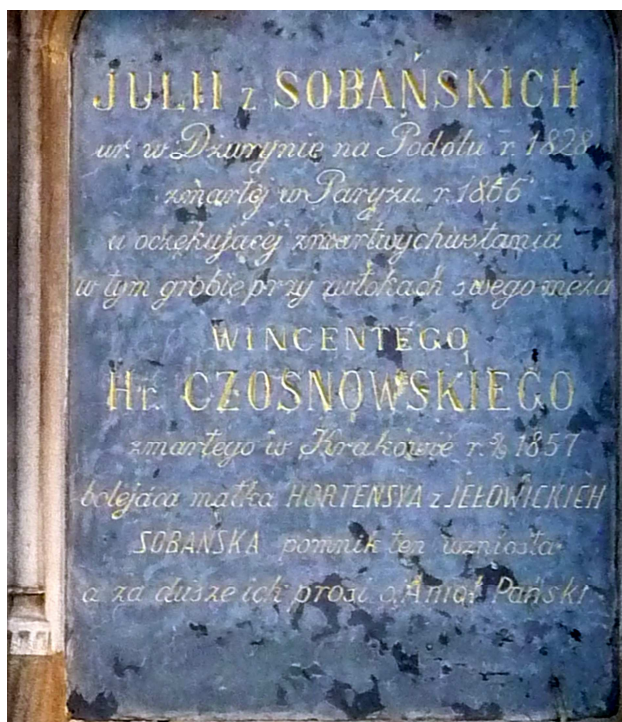 JULII z SOBAŃSKICH
ur. w Dżurynie na Podolu r. 1828
zmarłej w Paryżu r. 1866
a oczekującej zmartwychwstania
w tym grobie przy zwłokach swego męża
WINCENTEGO
Hr. CZOSNOWSKIEGO
zmarłego w Krakowie r. 1857
bolejąca matka HORTENSYA z JEŁOWICKICH
SOBAŃSKA pomnik ten wzniosła
a za dusze ich prosi o Anioł Pański